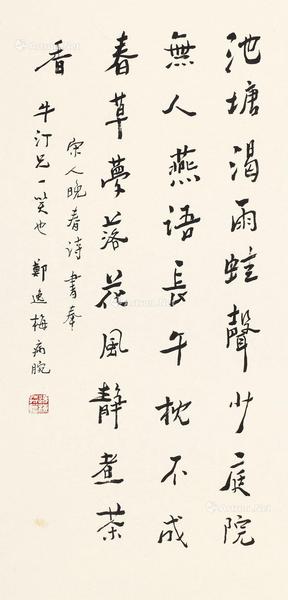 池塘渴雨蛙聲少庭院
無人燕語長午枕不成
春草夢落花風靜煮茶
香
宋人晚春诗 書奉
牛汀兄一笑也 鄭逸梅病腕